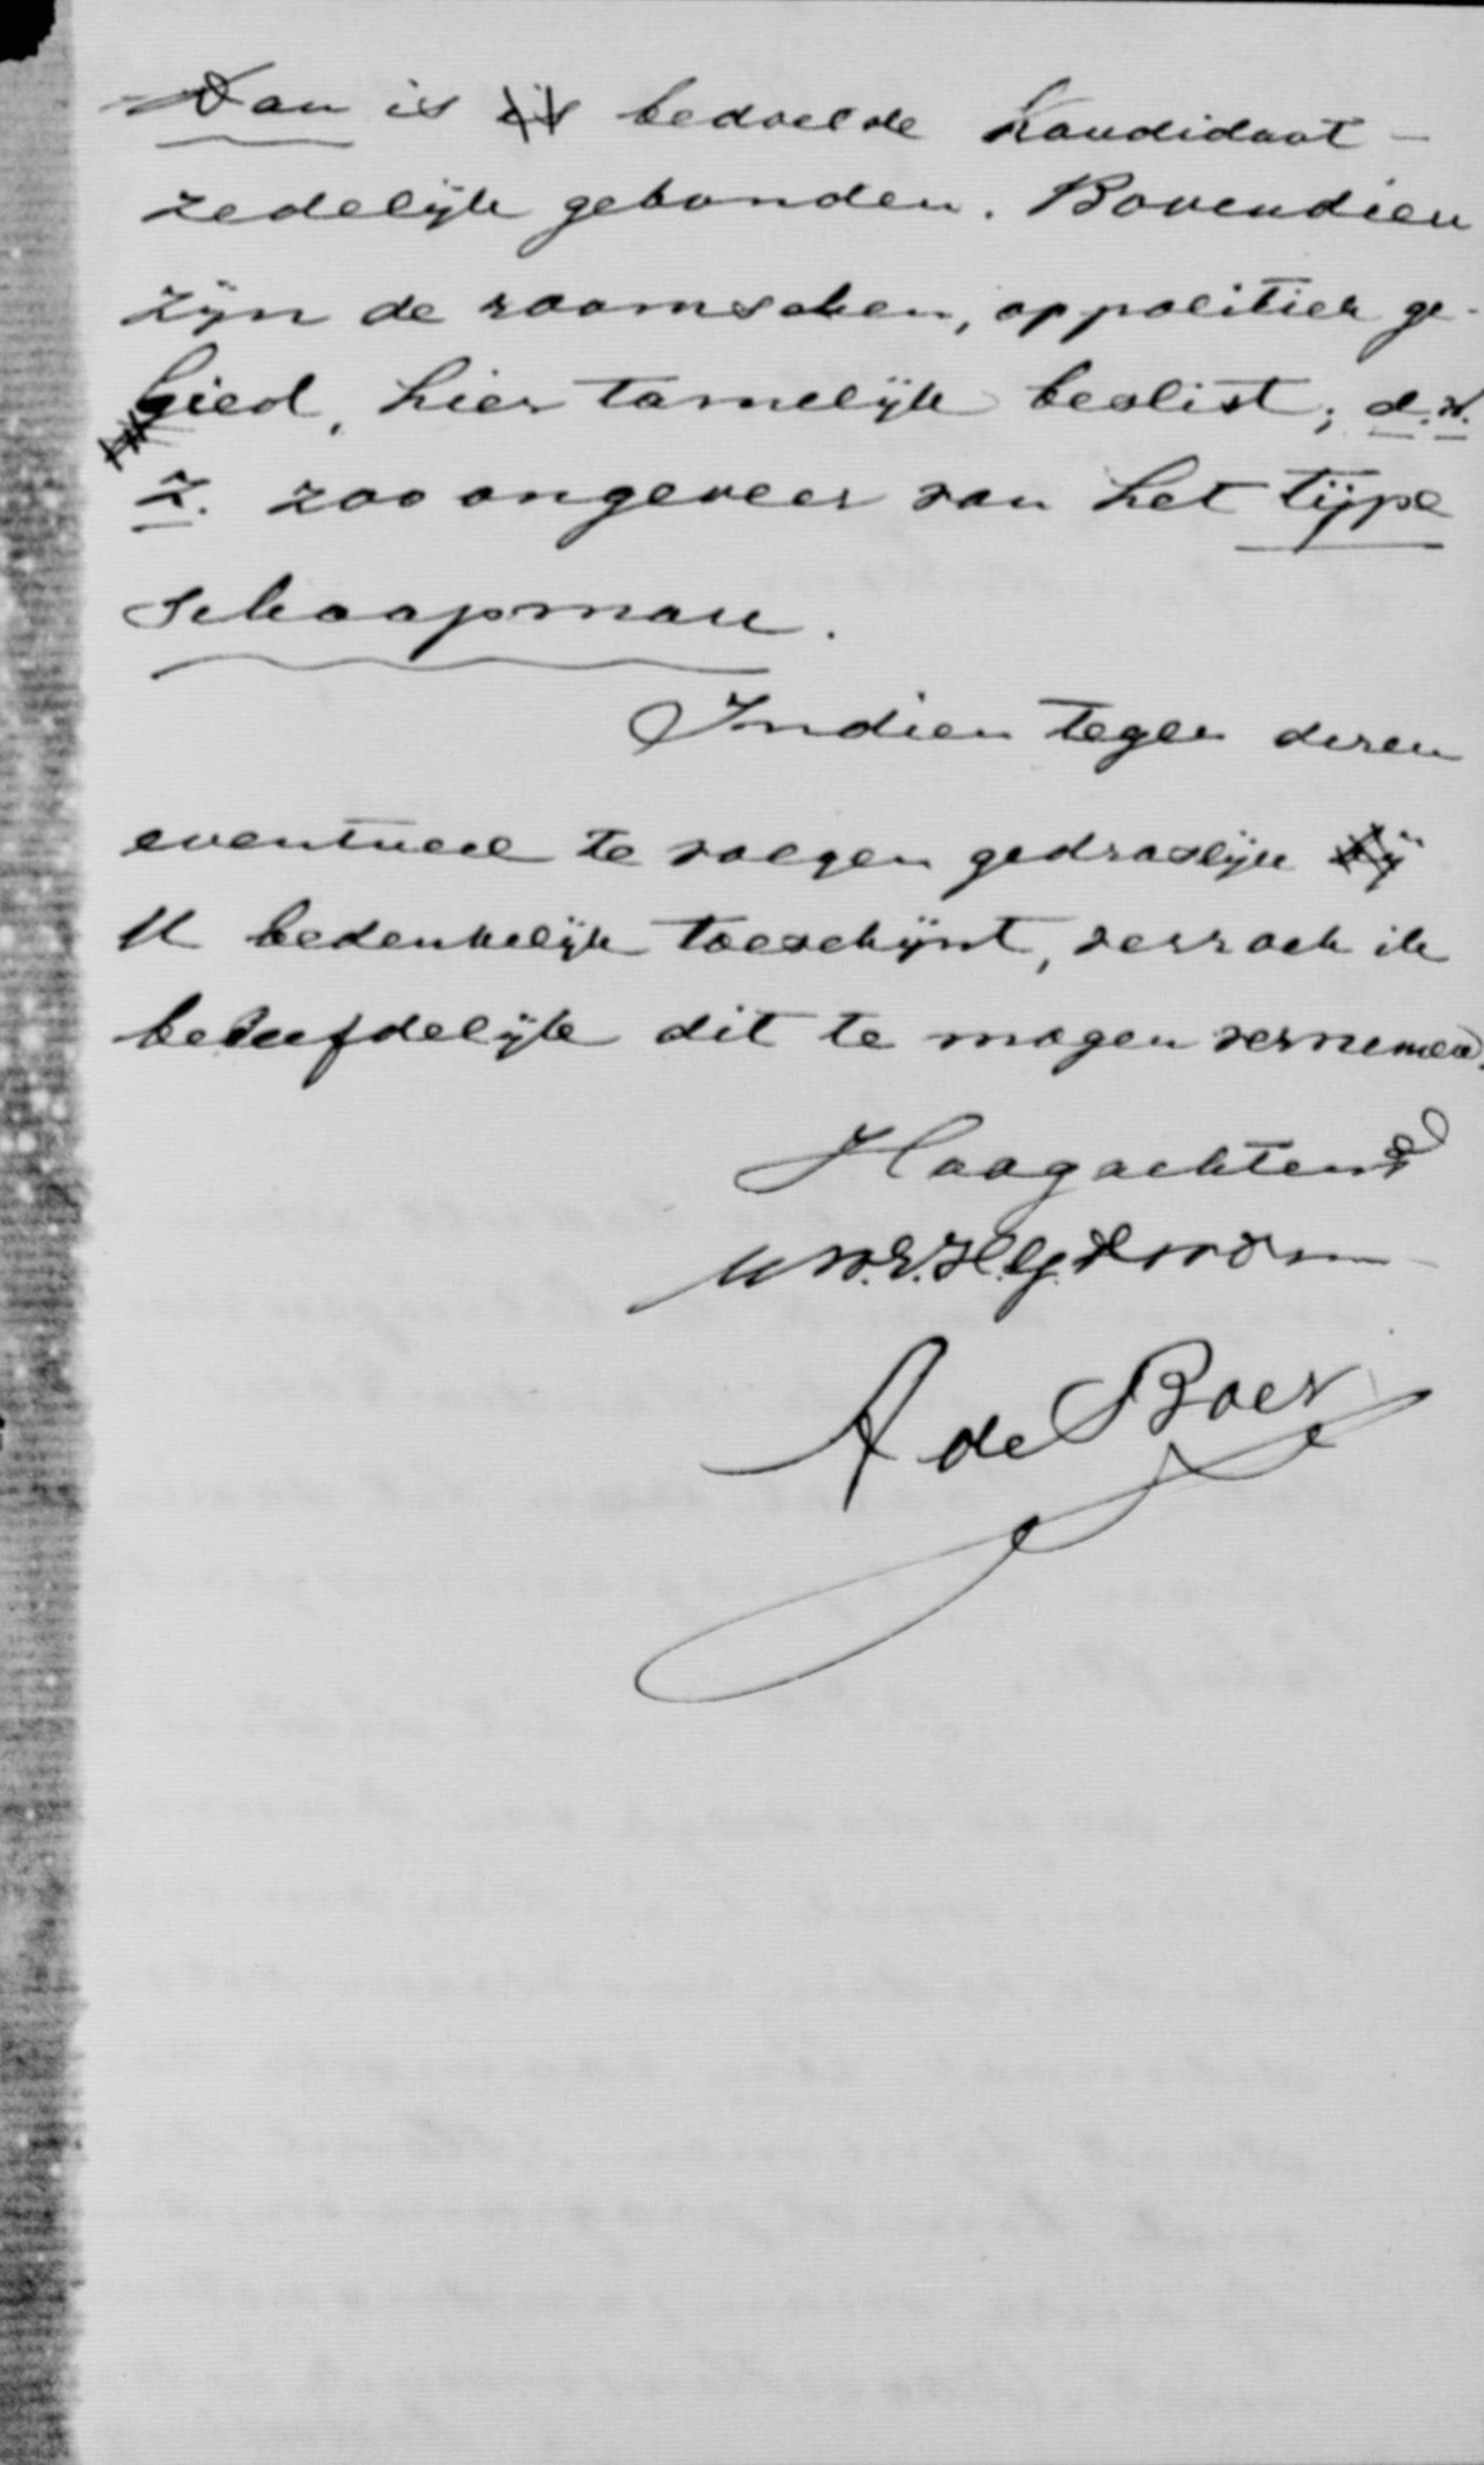 Dan is bedoelde Kandidaat -
zedelijk gebonden. Bovendien
zijn de roomschen, op politiek ge-
bied, hier tamelijk beslist; d.w.
z. zoo ongeveer van het type
Schaapman.
Indien tegen deren
eventueel te volgen gedragslijn
U bedenkelijk toeschijnt, verzoek ik
beleefdelijk dit te mogen vernemen.
Hoogachtend
A de Boer